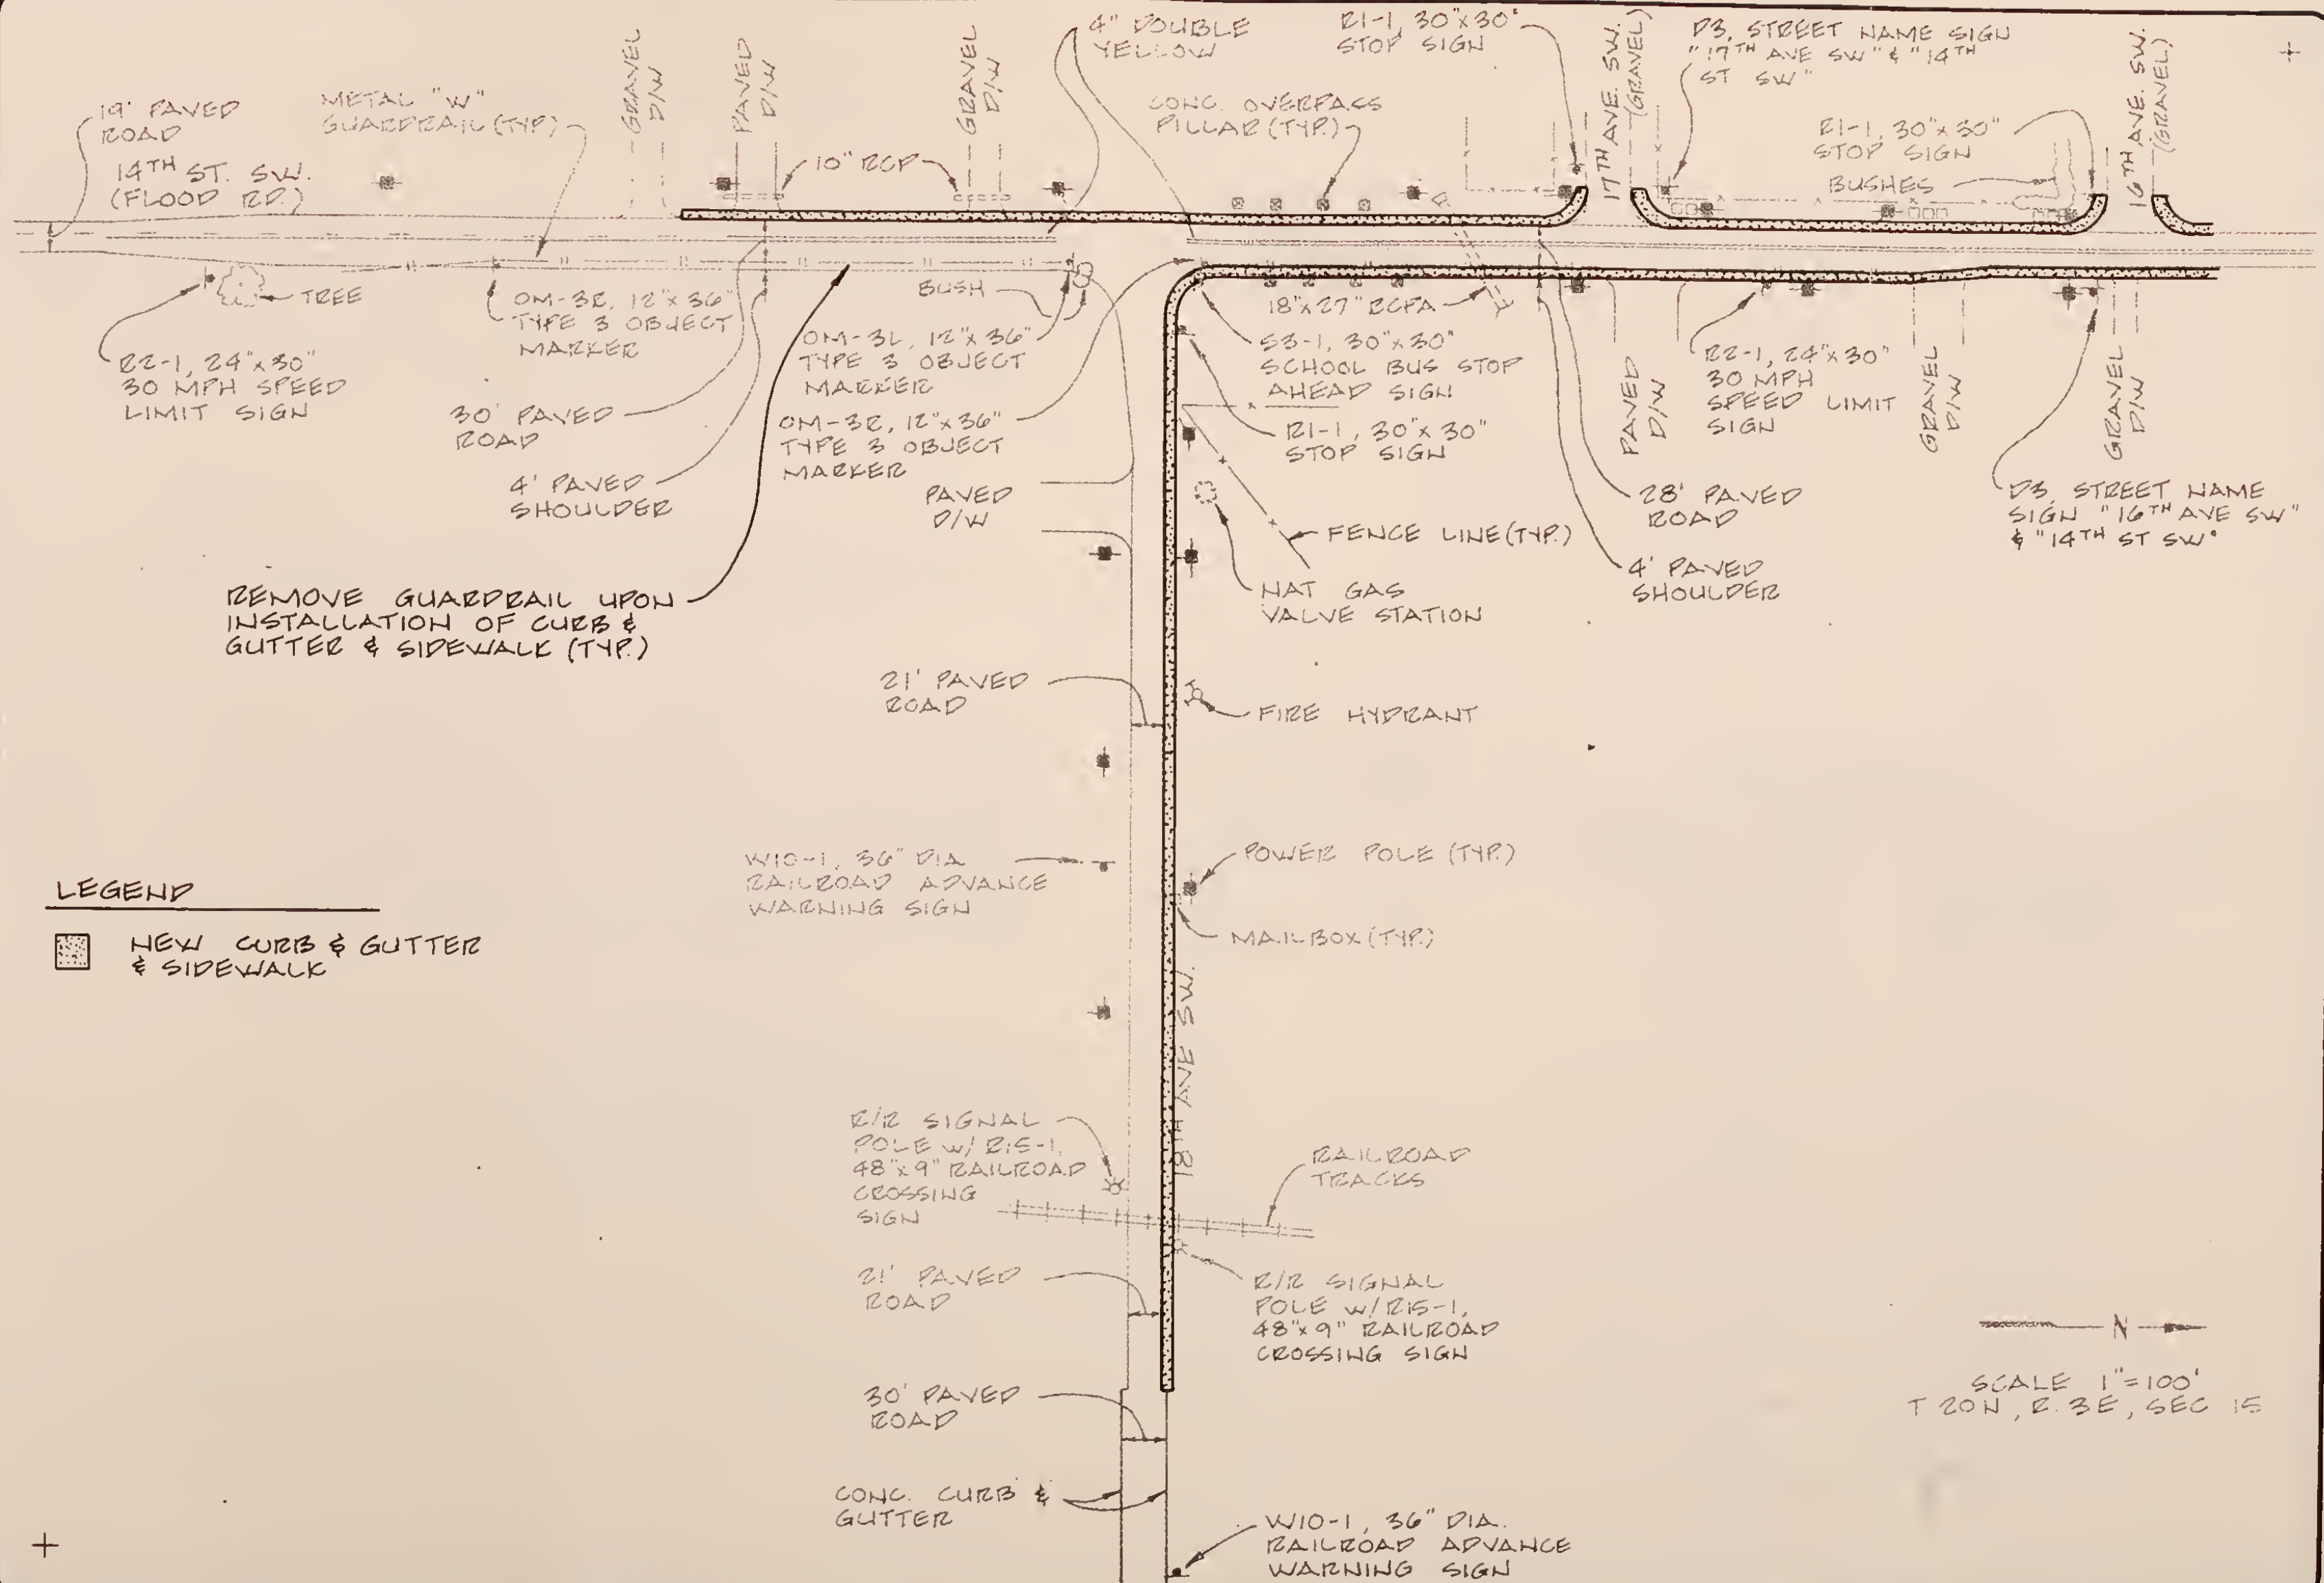 19' PAVED
ROAD
14TH ST. SW.
(FLOOD RD.)
METAL "W"
GUARDRAIL (TYP.)
GRAVEL
D/W
PAVED
D/W
10" RCP
GRAVEL
D/W
4" DOUBLE
YELLOW
CONC. OVERPASS
PILLAR (TYP.)
R1-1, 30"x30"
STOP SIGN
17TH AVE. SW.
(GRAVEL)
D3, STREET NAME SIGN
"17TH AVE SW" & "14TH
ST SW"
R1-1, 30"x30"
STOP SIGN
BUSHES
16TH AVE. SW.
(GRAVEL)
TREE
R2-1, 24"x30"
30 MPH SPEED
LIMIT SIGN
OM-3R, 12"x36"
TYPE 3 OBJECT
MARKER
30' PAVED
ROAD
4' PAVED
SHOULDER
BUSH
OM-3L, 12"x36"
TYPE 3 OBJECT
MARKER
OM-3R, 12"x36"
TYPE 3 OBJECT
MARKER
PAVED
D/W
18"x27" RCPA
S3-1, 30"x30"
SCHOOL BUS STOP
AHEAD SIGN
R1-1, 30"x30"
STOP SIGN
FENCE LINE (TYP.)
NAT GAS
VALVE STATION
PAVED
D/W
R2-1, 24"x30"
30 MPH
SPEED LIMIT
SIGN
28' PAVED
ROAD
4' PAVED
SHOULDER
GRAVEL
D/W
GRAVEL
D/W
D3, STREET NAME
SIGN "16TH AVE SW"
& "14TH ST SW"
REMOVE GUARDRAIL UPON
INSTALLATION OF CURB &
GUTTER & SIDEWALK (TYP.)
21' PAVED
ROAD
FIRE HYDRANT
W10-1, 36" DIA
RAILROAD ADVANCE
WARNING SIGN
POWER POLE (TYP.)
MAILBOX (TYP.)
LEGEND
NEW CURB & GUTTER
& SIDEWALK
18TH AVE SW.
R/R SIGNAL
POLE w/ R15-1,
48"x9" RAILROAD
CROSSING
SIGN
RAILROAD
TRACKS
21' PAVED
ROAD
R/R SIGNAL
POLE w/ R15-1,
48"x9" RAILROAD
CROSSING SIGN
30' PAVED
ROAD
CONC. CURB &
GUTTER
W10-1, 36" DIA.
RAILROAD ADVANCE
WARNING SIGN
N
SCALE 1"=100'
T 20N, R. 3E, SEC 15